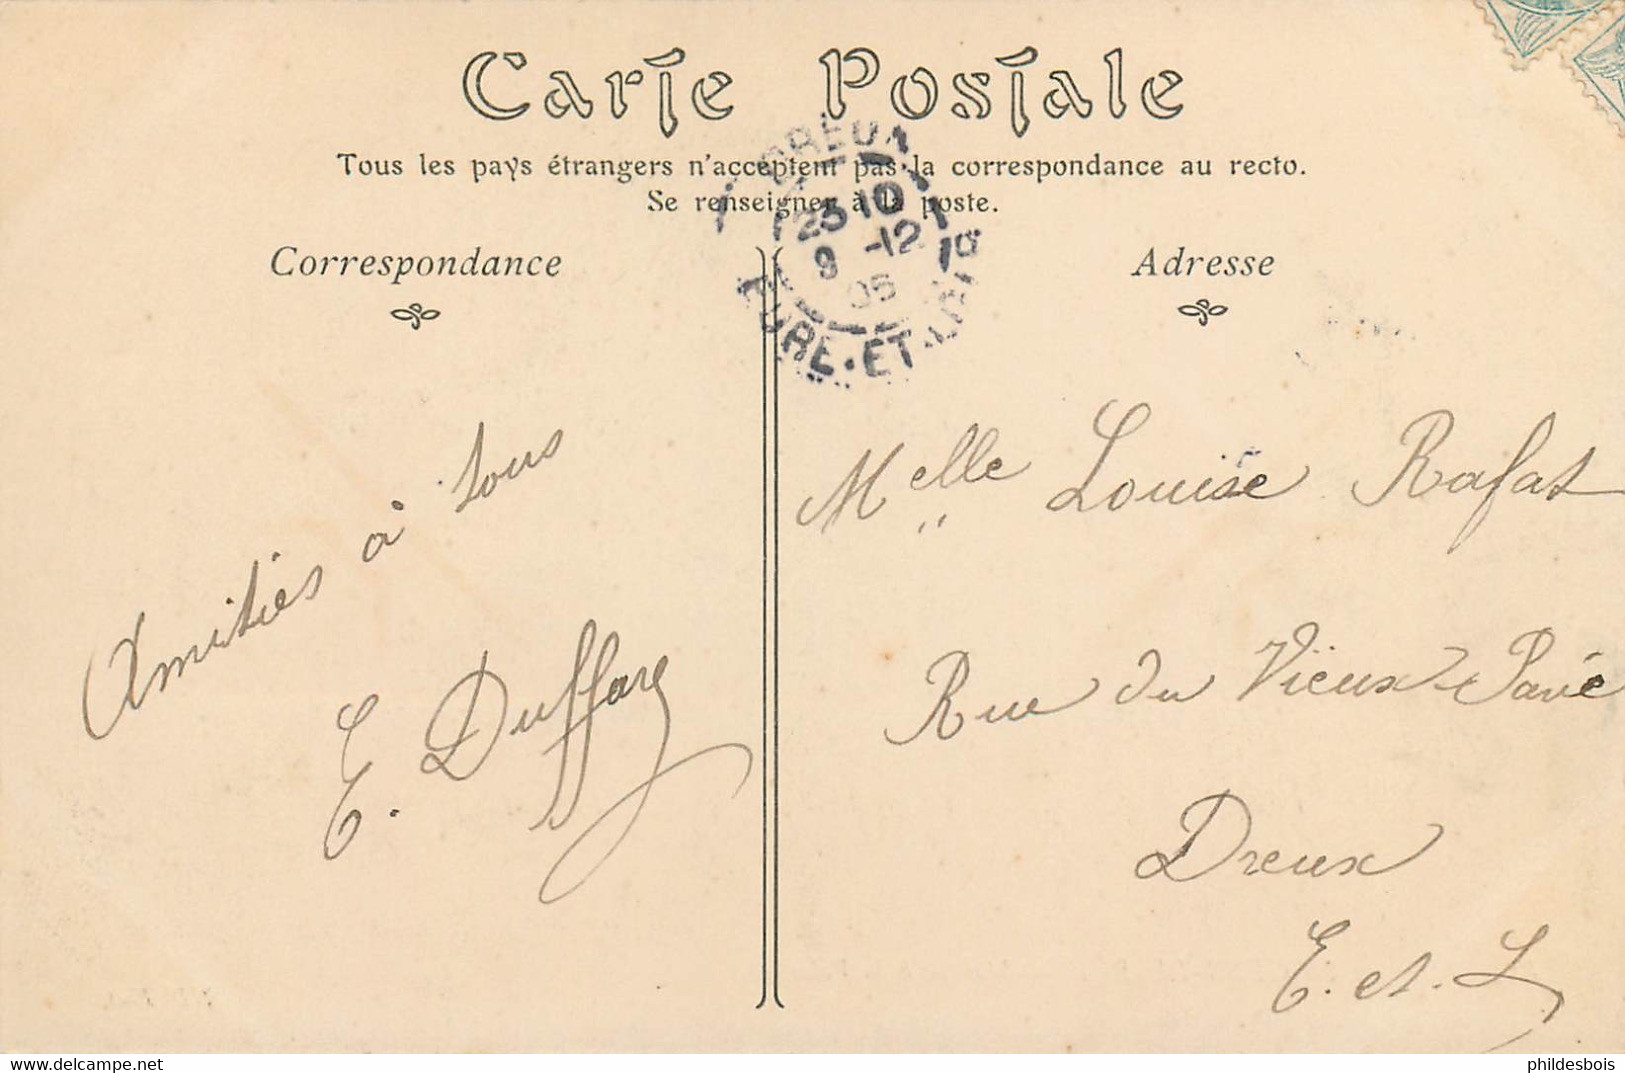 Carte Postale
Tous les pays étrangers n'acceptent pas la correspondance au recto.
Se renseigner à la poste.
DREUX
23 10
9 -12
05
EURE-ET-LOIR
Correspondance
Adresse
Amitiés à tous
E. Duffary
Melle Louise Rafat
Rue du Vieux-Pavé
Dreux
E. et. L
www.delcampe.net
phildesbois